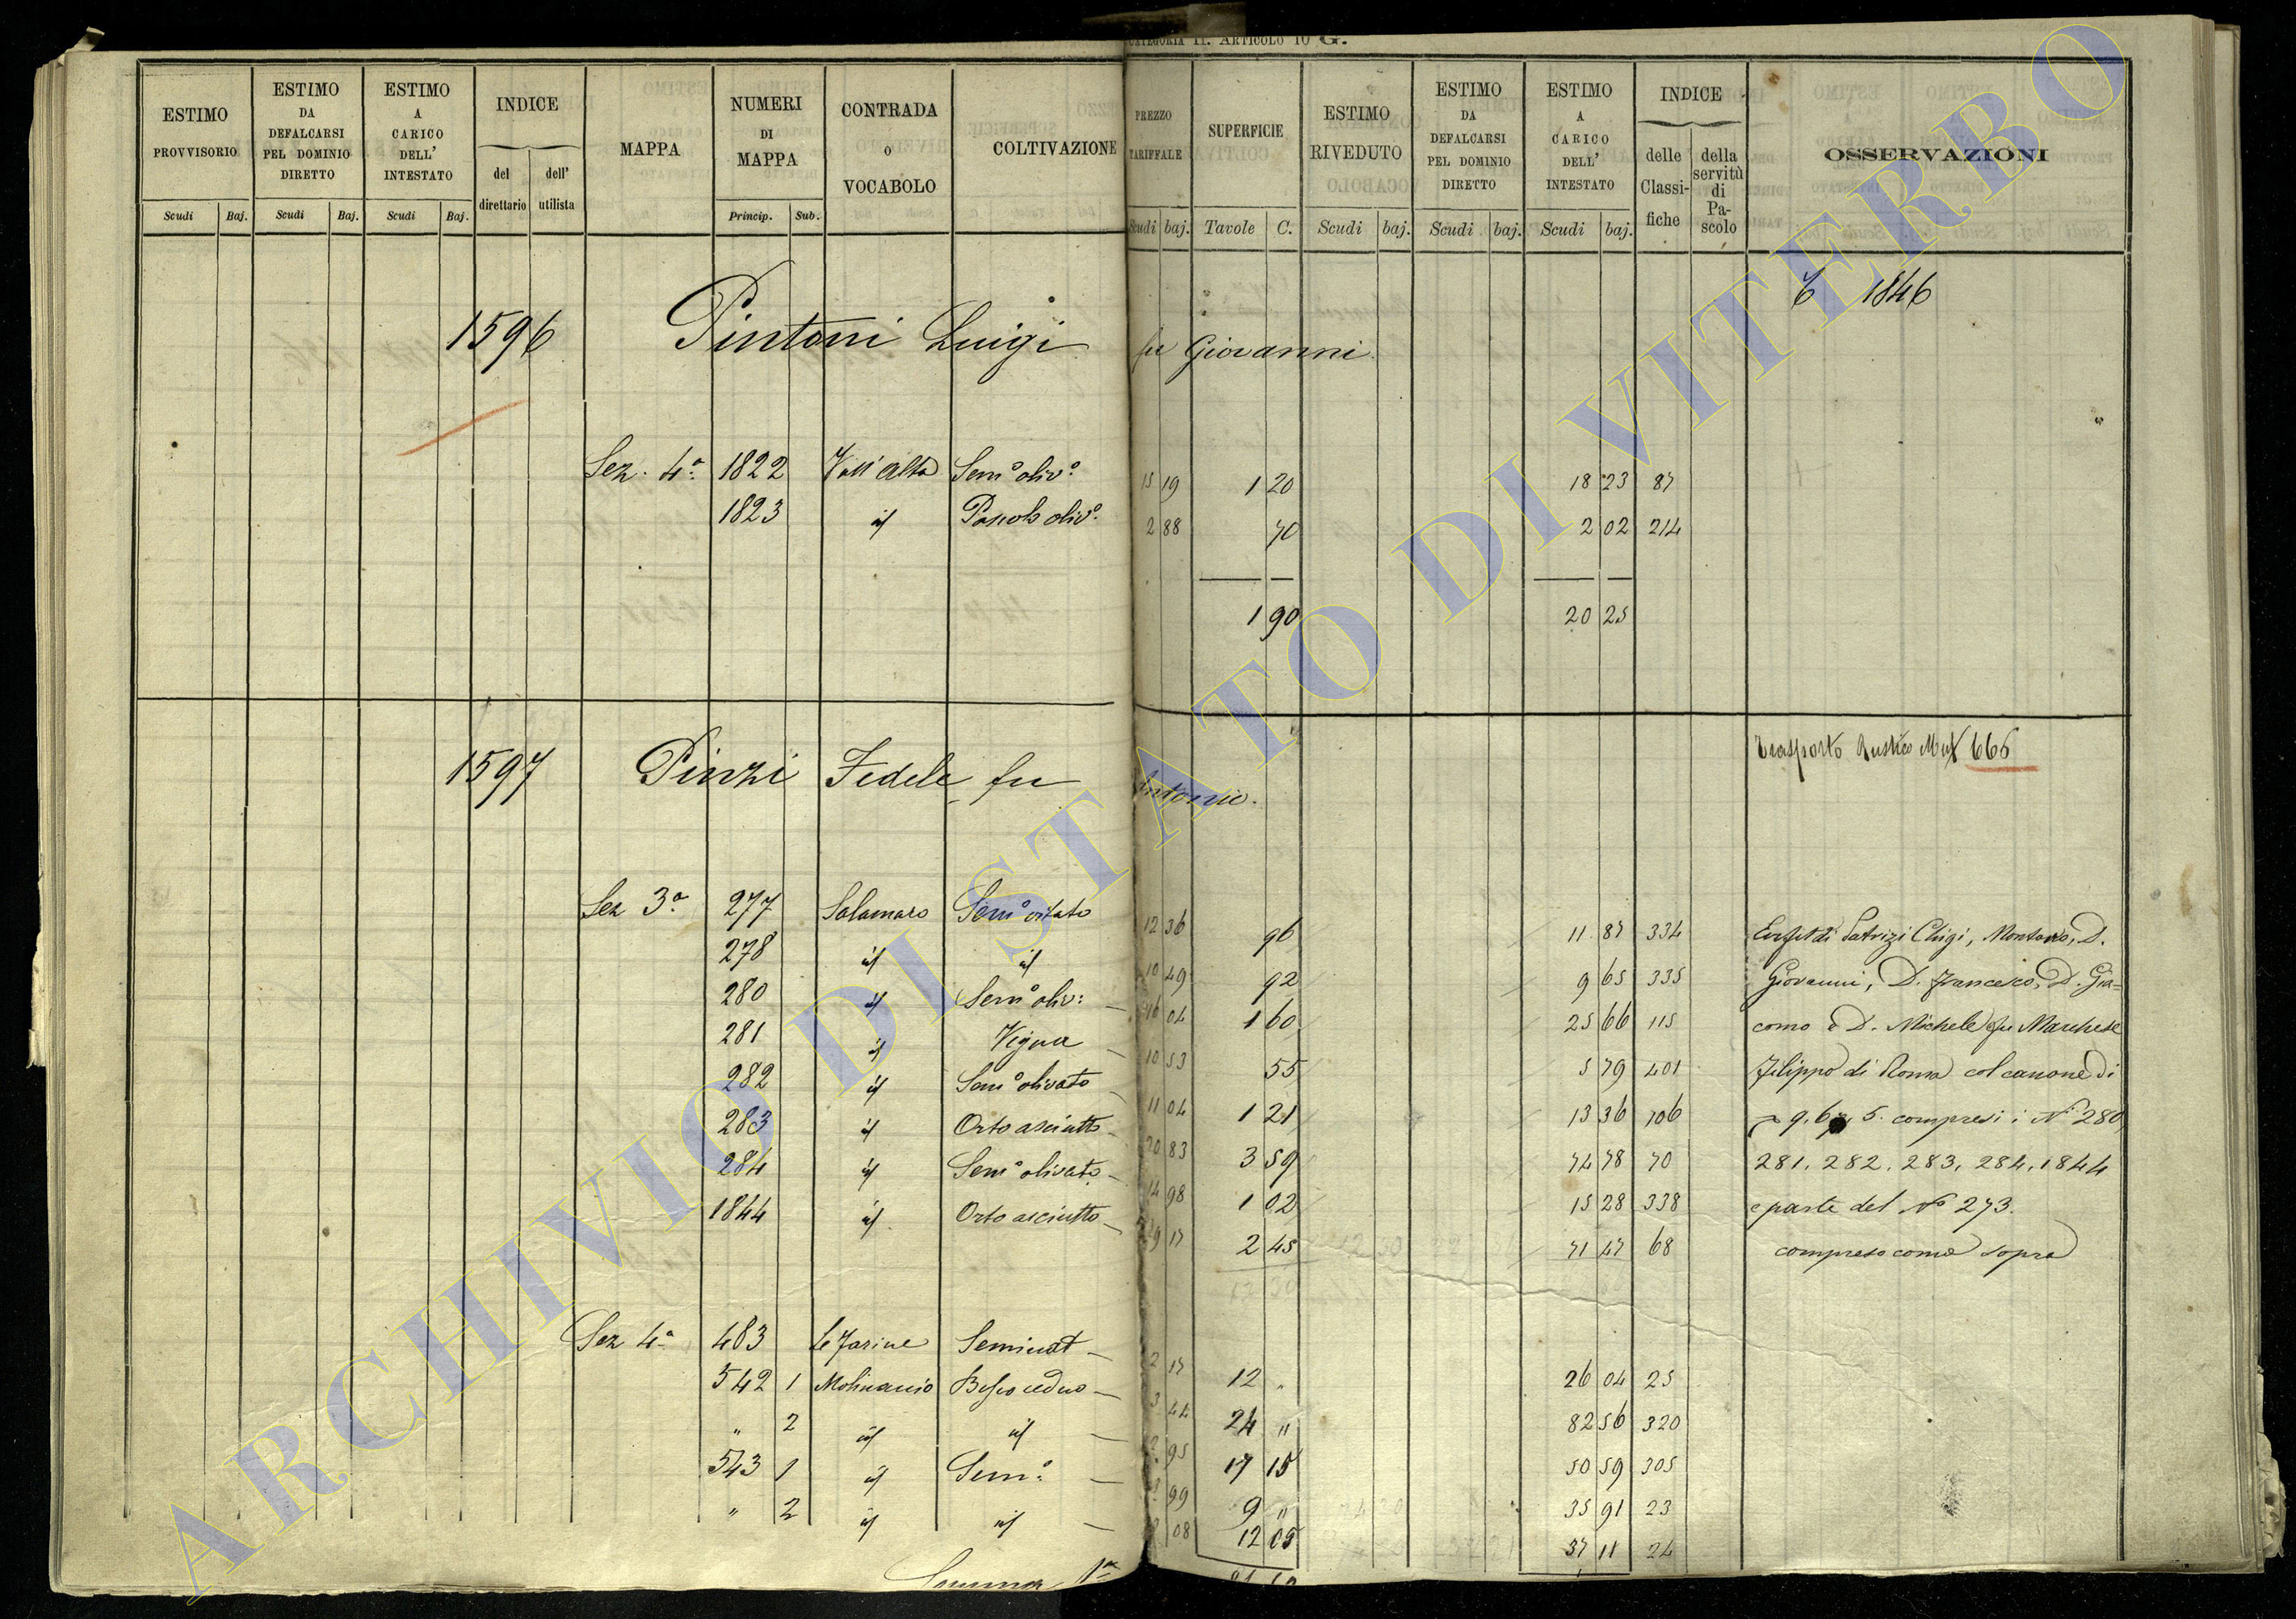 CATEGORIA II. ARTICOLO 10 G.
ESTIMO PROVVISORIO Scudi Baj.
ESTIMO DA DEFALCARSI PEL DOMINIO DIRETTO Scudi Baj.
ESTIMO A CARICO DELL' INTESTATO Scudi Baj.
INDICE del direttario dell' utilista
MAPPA
NUMERI DI MAPPA Princip. Sub.
CONTRADA O VOCABOLO
COLTIVAZIONE
PREZZO TARIFFALE Scudi baj.
SUPERFICIE Tavole C.
ESTIMO RIVEDUTO Scudi baj.
ESTIMO DA DEFALCARSI PEL DOMINIO DIRETTO Scudi baj.
ESTIMO A CARICO DELL' INTESTATO Scudi baj.
INDICE delle Classi- fiche della servitù di Pa- scolo
OSSERVAZIONI
1846
1596 Pintoni Luigi fu Giovanni
Sez. 4ª 1822 Vall'alta Semº olivº 15 19 1 20 18 23 87
1823 id Pascolo olivº 2 88 70 2 02 214
1 90 20 25
1597 Pinzi Fedele fu Antonio. Trasporto Rustico 666
Sez 3ª 277 Salamaro Semº vitato 12 36 96 11 87 334 Patrizi Chigi, Montoro, D.
278 id id 10 49 92 9 65 335 Giovanni, D. Francesco, D. Gia=
280 id Semº oliv: 16 04 1 60 25 66 115 como e D. Michele fu Marchese
281 id Vigna 10 53 55 5 79 401 Filippo di Roma col canone di
282 id Semº olivato 11 04 1 21 13 36 106 5. compresi i Nⁱ 280,
283 id Orto asciutto 20 83 3 59 74 78 70 281, 282, 283, 284, 1844
284 id Semº olivato 14 98 1 02 15 28 338 e parte del Nº 273.
1844 id Orto asciutto 29 17 2 45 71 47 68 compreso come sopra
Sez 4ª 483 Le Farine Seminat 2 17 12 " 26 04 25
542 1 Molinaccio Bosco ceduo 3 44 24 " 82 56 320
" 2 id id 95 17 15 50 59 305
543 1 id Semº 99 9 " 35 91 23
" 2 id id 08 12 05 37 11 24
Somma
ARCHIVIO DI STATO DI VITERBO